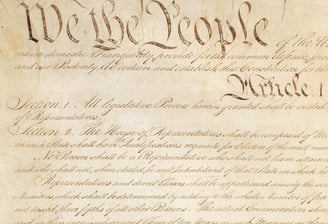 We the People of the
insure domestic Tranquility, provide for the common defence,
and our Posterity, do ordain and establish this Constitution for the
Article I
Section. 1. All legislative Powers herein granted shall be vested
of Representatives.
Section. 2. The House of Representatives shall be composed of
in each State shall have Qualifications requisite for Electors of the most
No Person shall be a Representative who shall not have attained
and who shall not, when elected, be an Inhabitant of that State in which
Representatives and direct Taxes shall be apportioned among the
Numbers, which shall be determined by adding to the whole Number of
not taxed, three fifths of all other Persons. The actual Enumeration